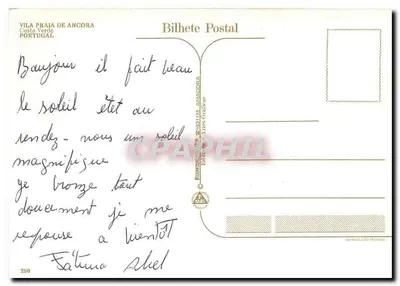 VILA PRAIA DE ANCORA
Costa Verde
PORTUGAL
Bilhete Postal
Bonjour il fait beau
le soleil étet au
rendez-nous um soleil
magnifique
ge bronze tout
doucement je me
repouse a bientôt
Fátima Abel
CPAPHIL
250